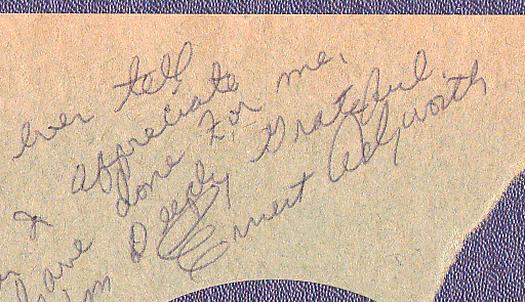 ever tell
I appreciate
have done for me,
Deeply Grateful,
Ernest Ashworth